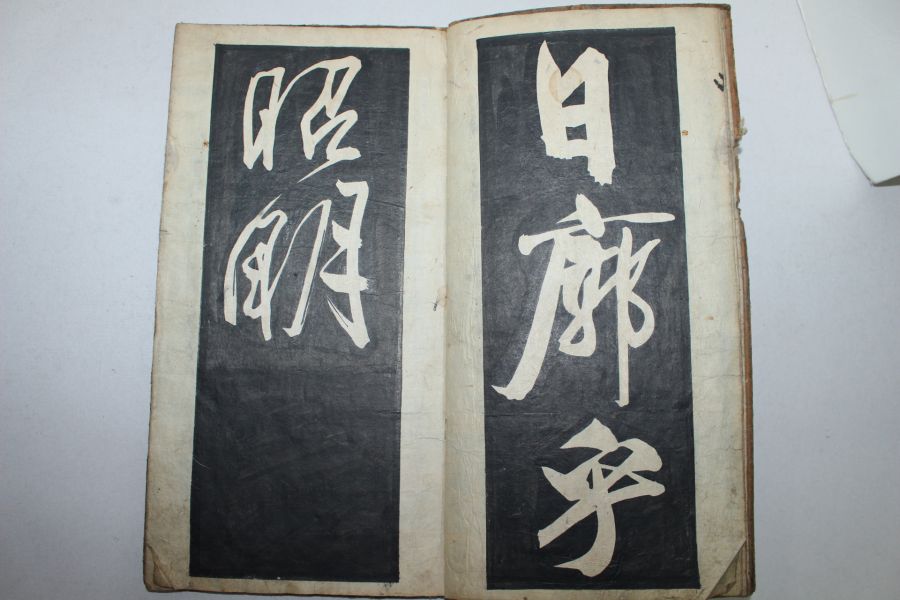 日廓乎
昭明